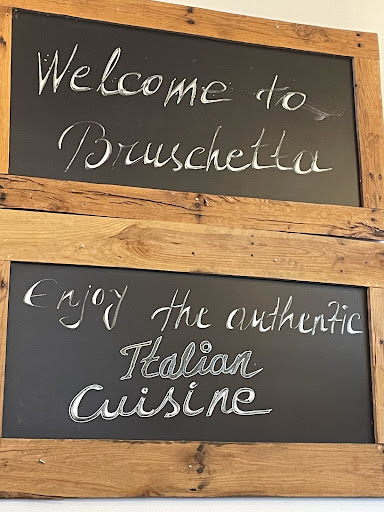 Welcome to
Bruschetta
Enjoy the authentic
Italian
Cuisine